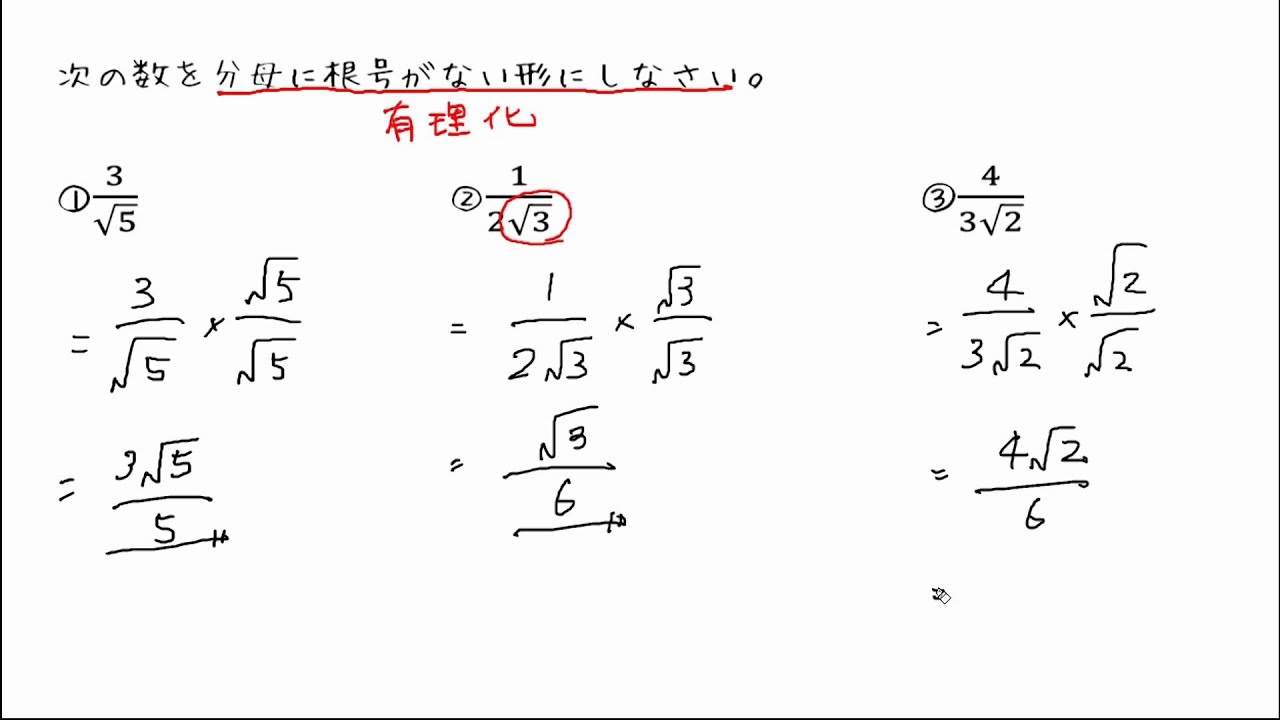 次の数を分母に根号がない形にしなさい。
有理化
① 3/√5
= 3/√5 × √5/√5
= 3√5/5
② 1/2√3
= 1/2√3 × √3/√3
= √3/6
③ 4/3√2
= 4/3√2 × √2/√2
= 4√2/6
=